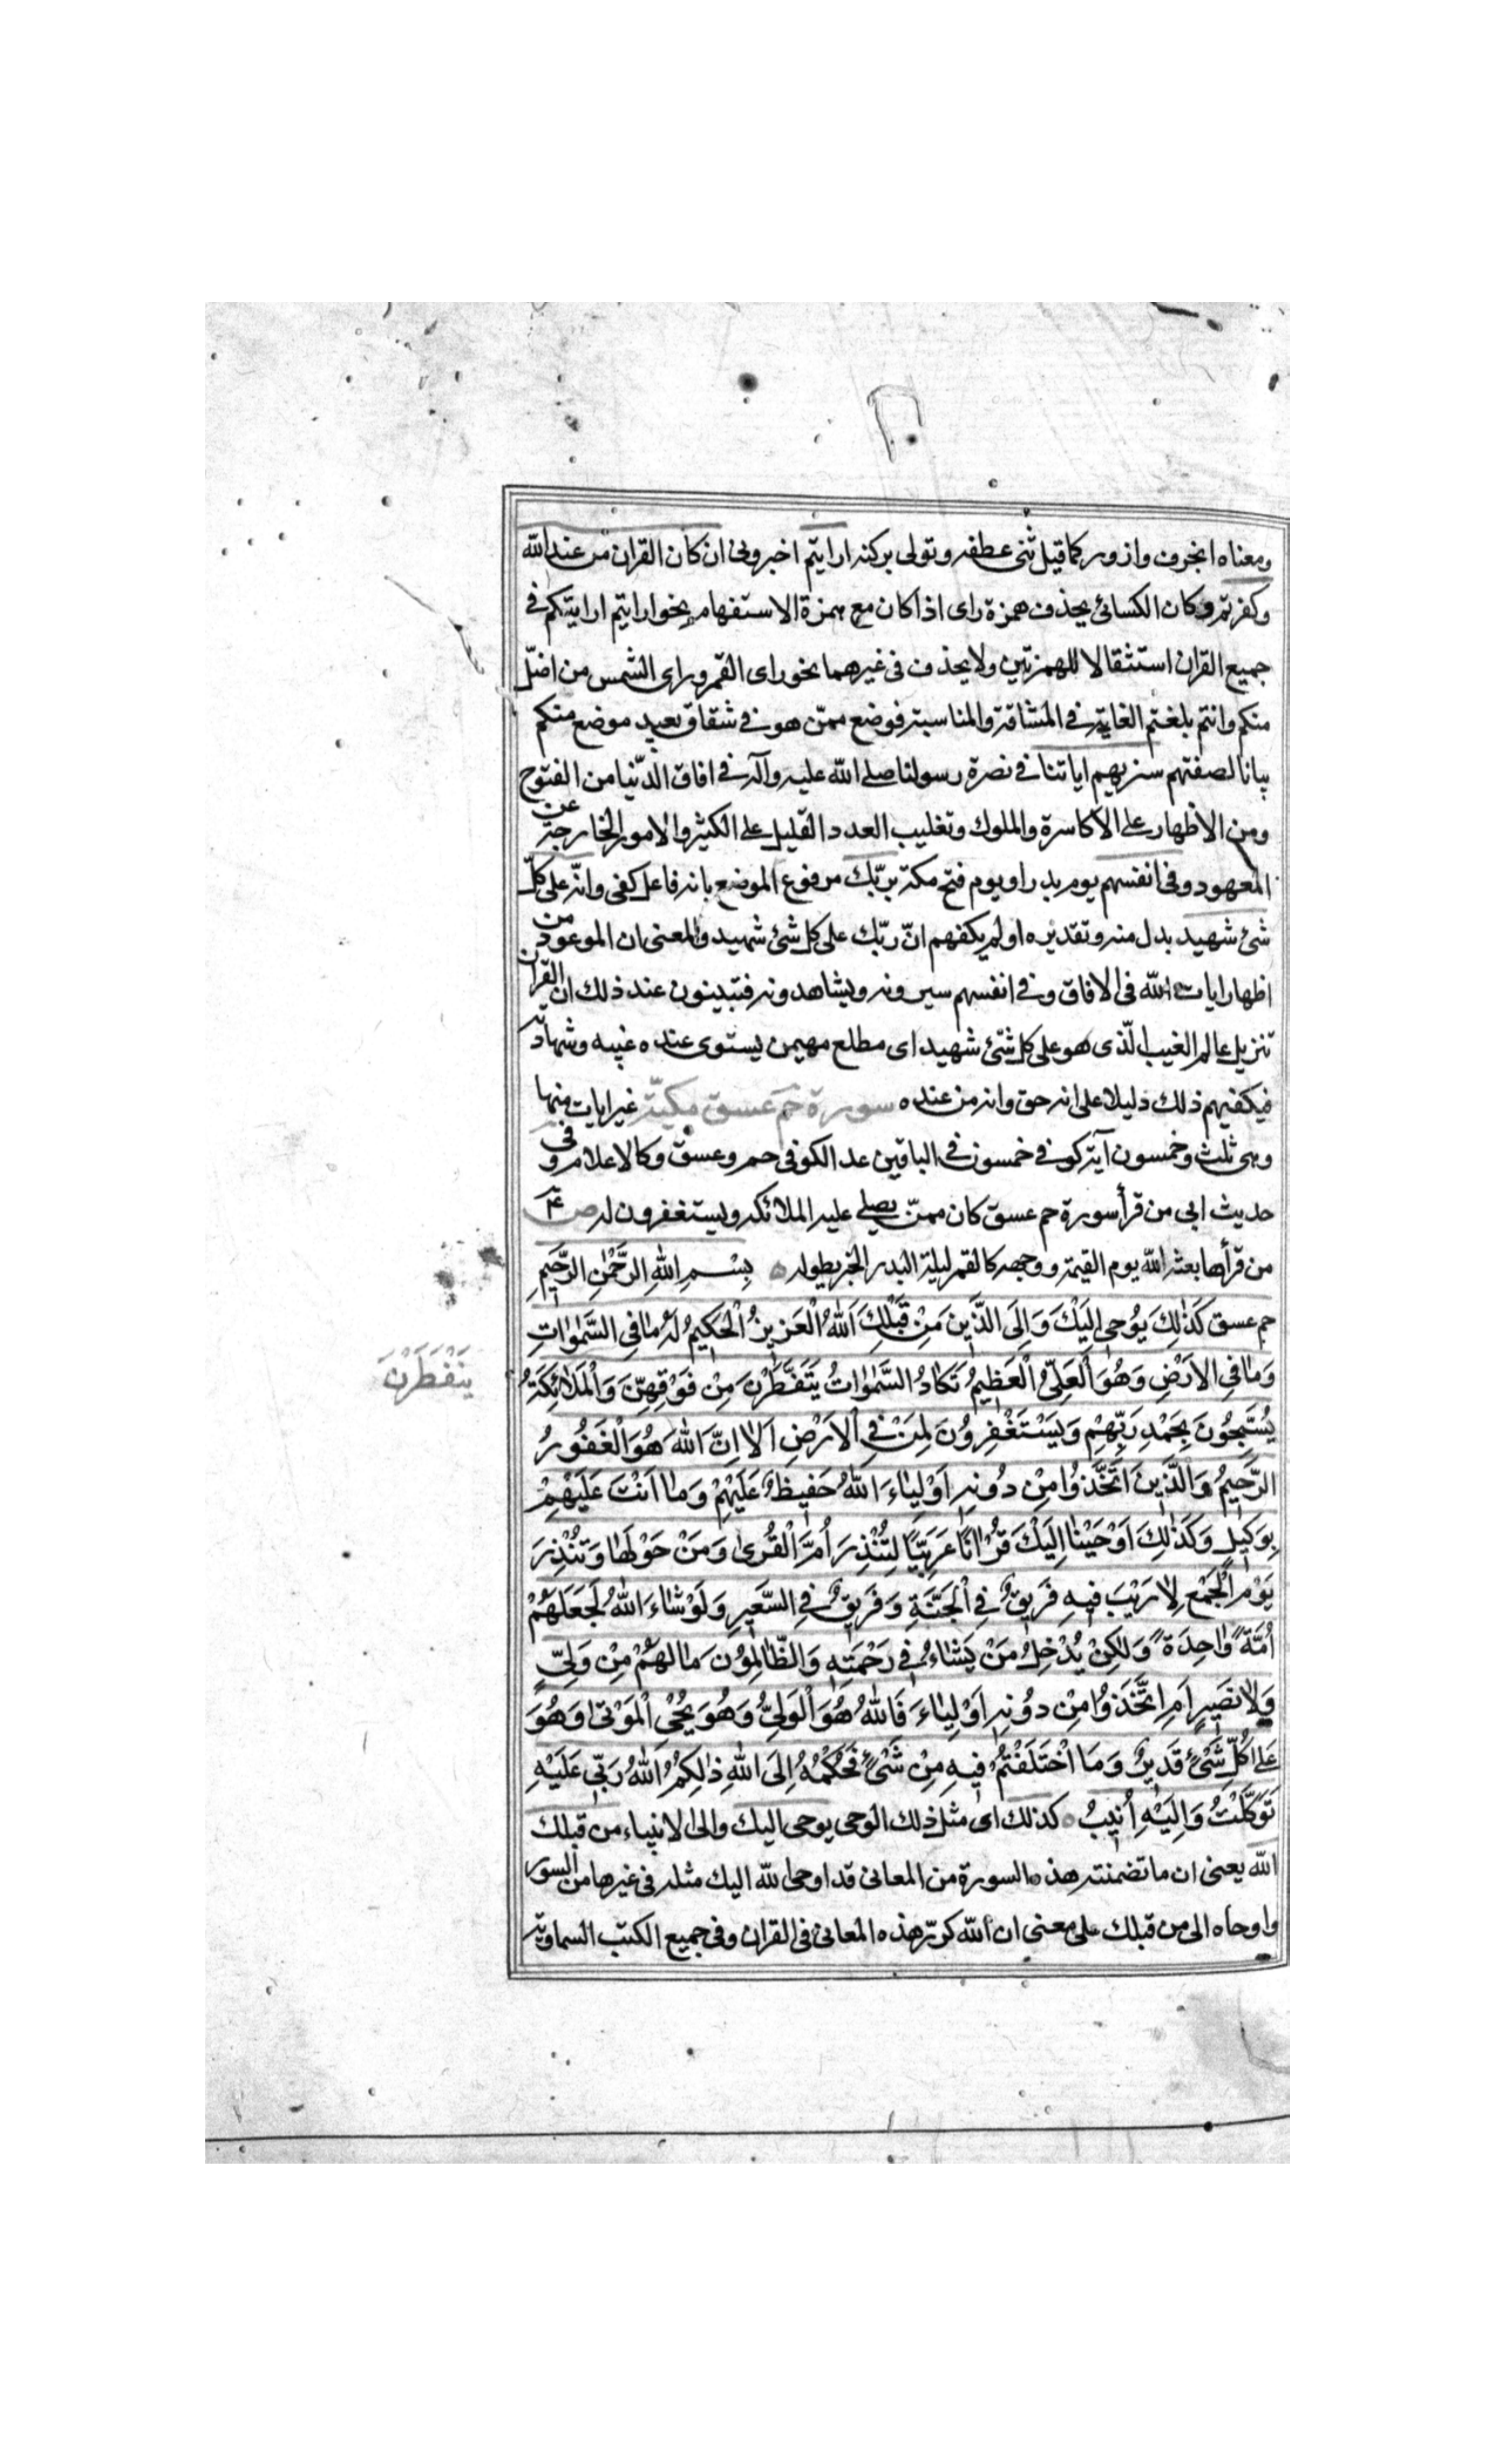 ومعناه انحرف وازور كما قيل ثنى عطفه وتولى بركنه ارايتم اخبروني ان كان القران من عند الله
وكفرتم وكان الكسائي يحذف همزة راى اذا كان مع همزة الاستفهام نحو ارايتم ارايتكم في
جميع القران استثقالا للهمزتين ولا يحذف في غيرهما نحو راى القمر وراى الشمس من اضلّ
منكم وانتم بلغتم الغاية في المشاقة والمناسبة فوضع ممّن هو في شقاق بعيد موضع منكم
بيانا لصفتهم سنريهم اياتنا في نصرة رسولنا صلى الله عليه وآله في افاق الدّنيا من الفتوح
ومن الاظهار على الاكاسرة والملوك وتغليب العدد القليل على الكثير والامور الخارجة عن
المعهود وفي انفسهم يوم بدر او يوم فتح مكة بربّك مرفوع الموضع بانه فاعل كفى وانّه على كلّ
شئ شهيد بدل منه وتقديره اولم يكفهم انّ ربّك على كل شئ شهيد والمعنى ان الموعود من
اظهار ايات الله في الافاق وفي انفسهم سيرونه ويشاهدونه فتبينون عند ذلك ان القران
تنزيل عالم الغيب الّذى هو على كل شئ شهيد اى مطلع مهيمن يستوى عنده غيبه وشهادته
فيكفيهم ذلك دليلا على انه حق وانه من عنده سورة حم عسق مكيّة غير ايات منها
وهى ثلث وخمسون آية كوفي خمسون في الباقين عد الكوفي حم وعسق وكالاعلام وفي
حديث ابى من قرأ سورة حم عسق كان ممّن يصلى عليه الملائكه ويستغفرون له ص ع
من قرأها بعثه الله يوم القيمة ووجهه كالقمر ليلة البدر الخبر بطوله بِسْمِ اللهِ الرَّحْمٰنِ الرَّحِيمِ
حم عسق كَذٰلِكَ يُوحِى اِلَيْكَ وَاِلَى الَّذِينَ مِنْ قَبْلِكَ اَللهُ الْعَزِيزُ الْحَكِيمُ لَهُ مٰا فِى السَّمٰوٰاتِ
وَمٰا فِى الاَرْضِ وَهُوَ الْعَلِىُّ الْعَظِيمُ تَكٰادُ السَّمٰوٰاتُ يَتَفَطَّرْنَ مِنْ فَوْقِهِنَّ وَالْمَلاٰئِكَةُ
يَنْفَطِرْنَ
يُسَبِّحُونَ بِحَمْدِ رَبِّهِمْ وَيَسْتَغْفِرُونَ لِمَنْ فِى الاَرْضِ اَلاٰ اِنَّ اللهَ هُوَ الْغَفُورُ
الرَّحِيمُ وَالَّذِينَ اتَّخَذُوا مِنْ دُونِهِ اَوْلِيٰاءَ اللهُ حَفِيظٌ عَلَيْهِمْ وَمٰا اَنْتَ عَلَيْهِمْ
بِوَكِيلٍ وَكَذٰلِكَ اَوْحَيْنٰا اِلَيْكَ قُرْاٰنًا عَرَبِيًّا لِتُنْذِرَ اُمَّ الْقُرىٰ وَمَنْ حَوْلَهٰا وَتُنْذِرَ
يَوْمَ الْجَمْعِ لاٰ رَيْبَ فِيهِ فَرِيقٌ فِى الْجَنَّةِ وَفَرِيقٌ فِى السَّعِيرِ وَلَوْ شٰاءَ اللهُ لَجَعَلَهُمْ
اُمَّةً وٰاحِدَةً وَلٰكِنْ يُدْخِلُ مَنْ يَشٰاءُ فِى رَحْمَتِهِ وَالظّٰالِمُونَ مٰا لَهُمْ مِنْ وَلِىٍّ
وَلاٰ نَصِيرٍ اَمِ اتَّخَذُوا مِنْ دُونِهِ اَوْلِيٰاءَ فَاللهُ هُوَ الْوَلِىُّ وَهُوَ يُحْىِ الْمَوْتىٰ وَهُوَ
عَلىٰ كُلِّ شَىْءٍ قَدِيرٌ وَمَا اخْتَلَفْتُمْ فِيهِ مِنْ شَىْءٍ فَحُكْمُهُ اِلَى اللهِ ذٰلِكُمُ اللهُ رَبِّى عَلَيْهِ
تَوَكَّلْتُ وَاِلَيْهِ اُنِيبُ كذلك اى مثل ذلك الوحى يوحى اليك والى الانبياء من قبلك
الله يعنى ان ما تضمنته هذه السورة من المعانى قد اوحى الله اليك مثله في غيرها من السور
واوحاه الى من قبلك على معنى ان الله كرّر هذه المعانى في القران وفي جميع الكتب السماوية